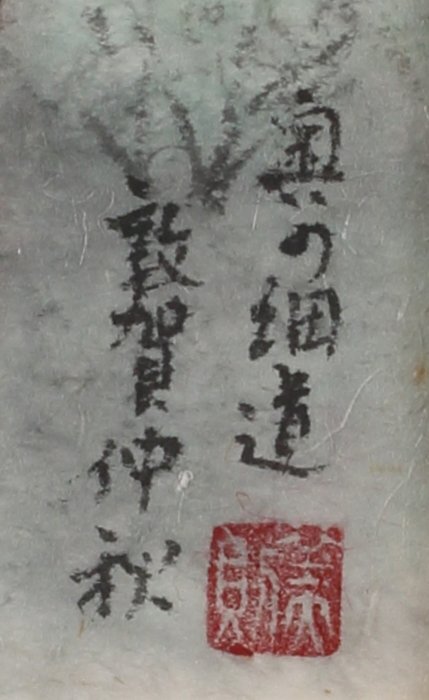 奥の細道
敦賀仲秋